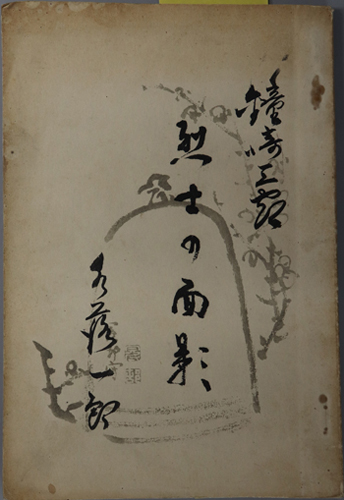 鐘崎三郎
烈士の面影
水落一郎